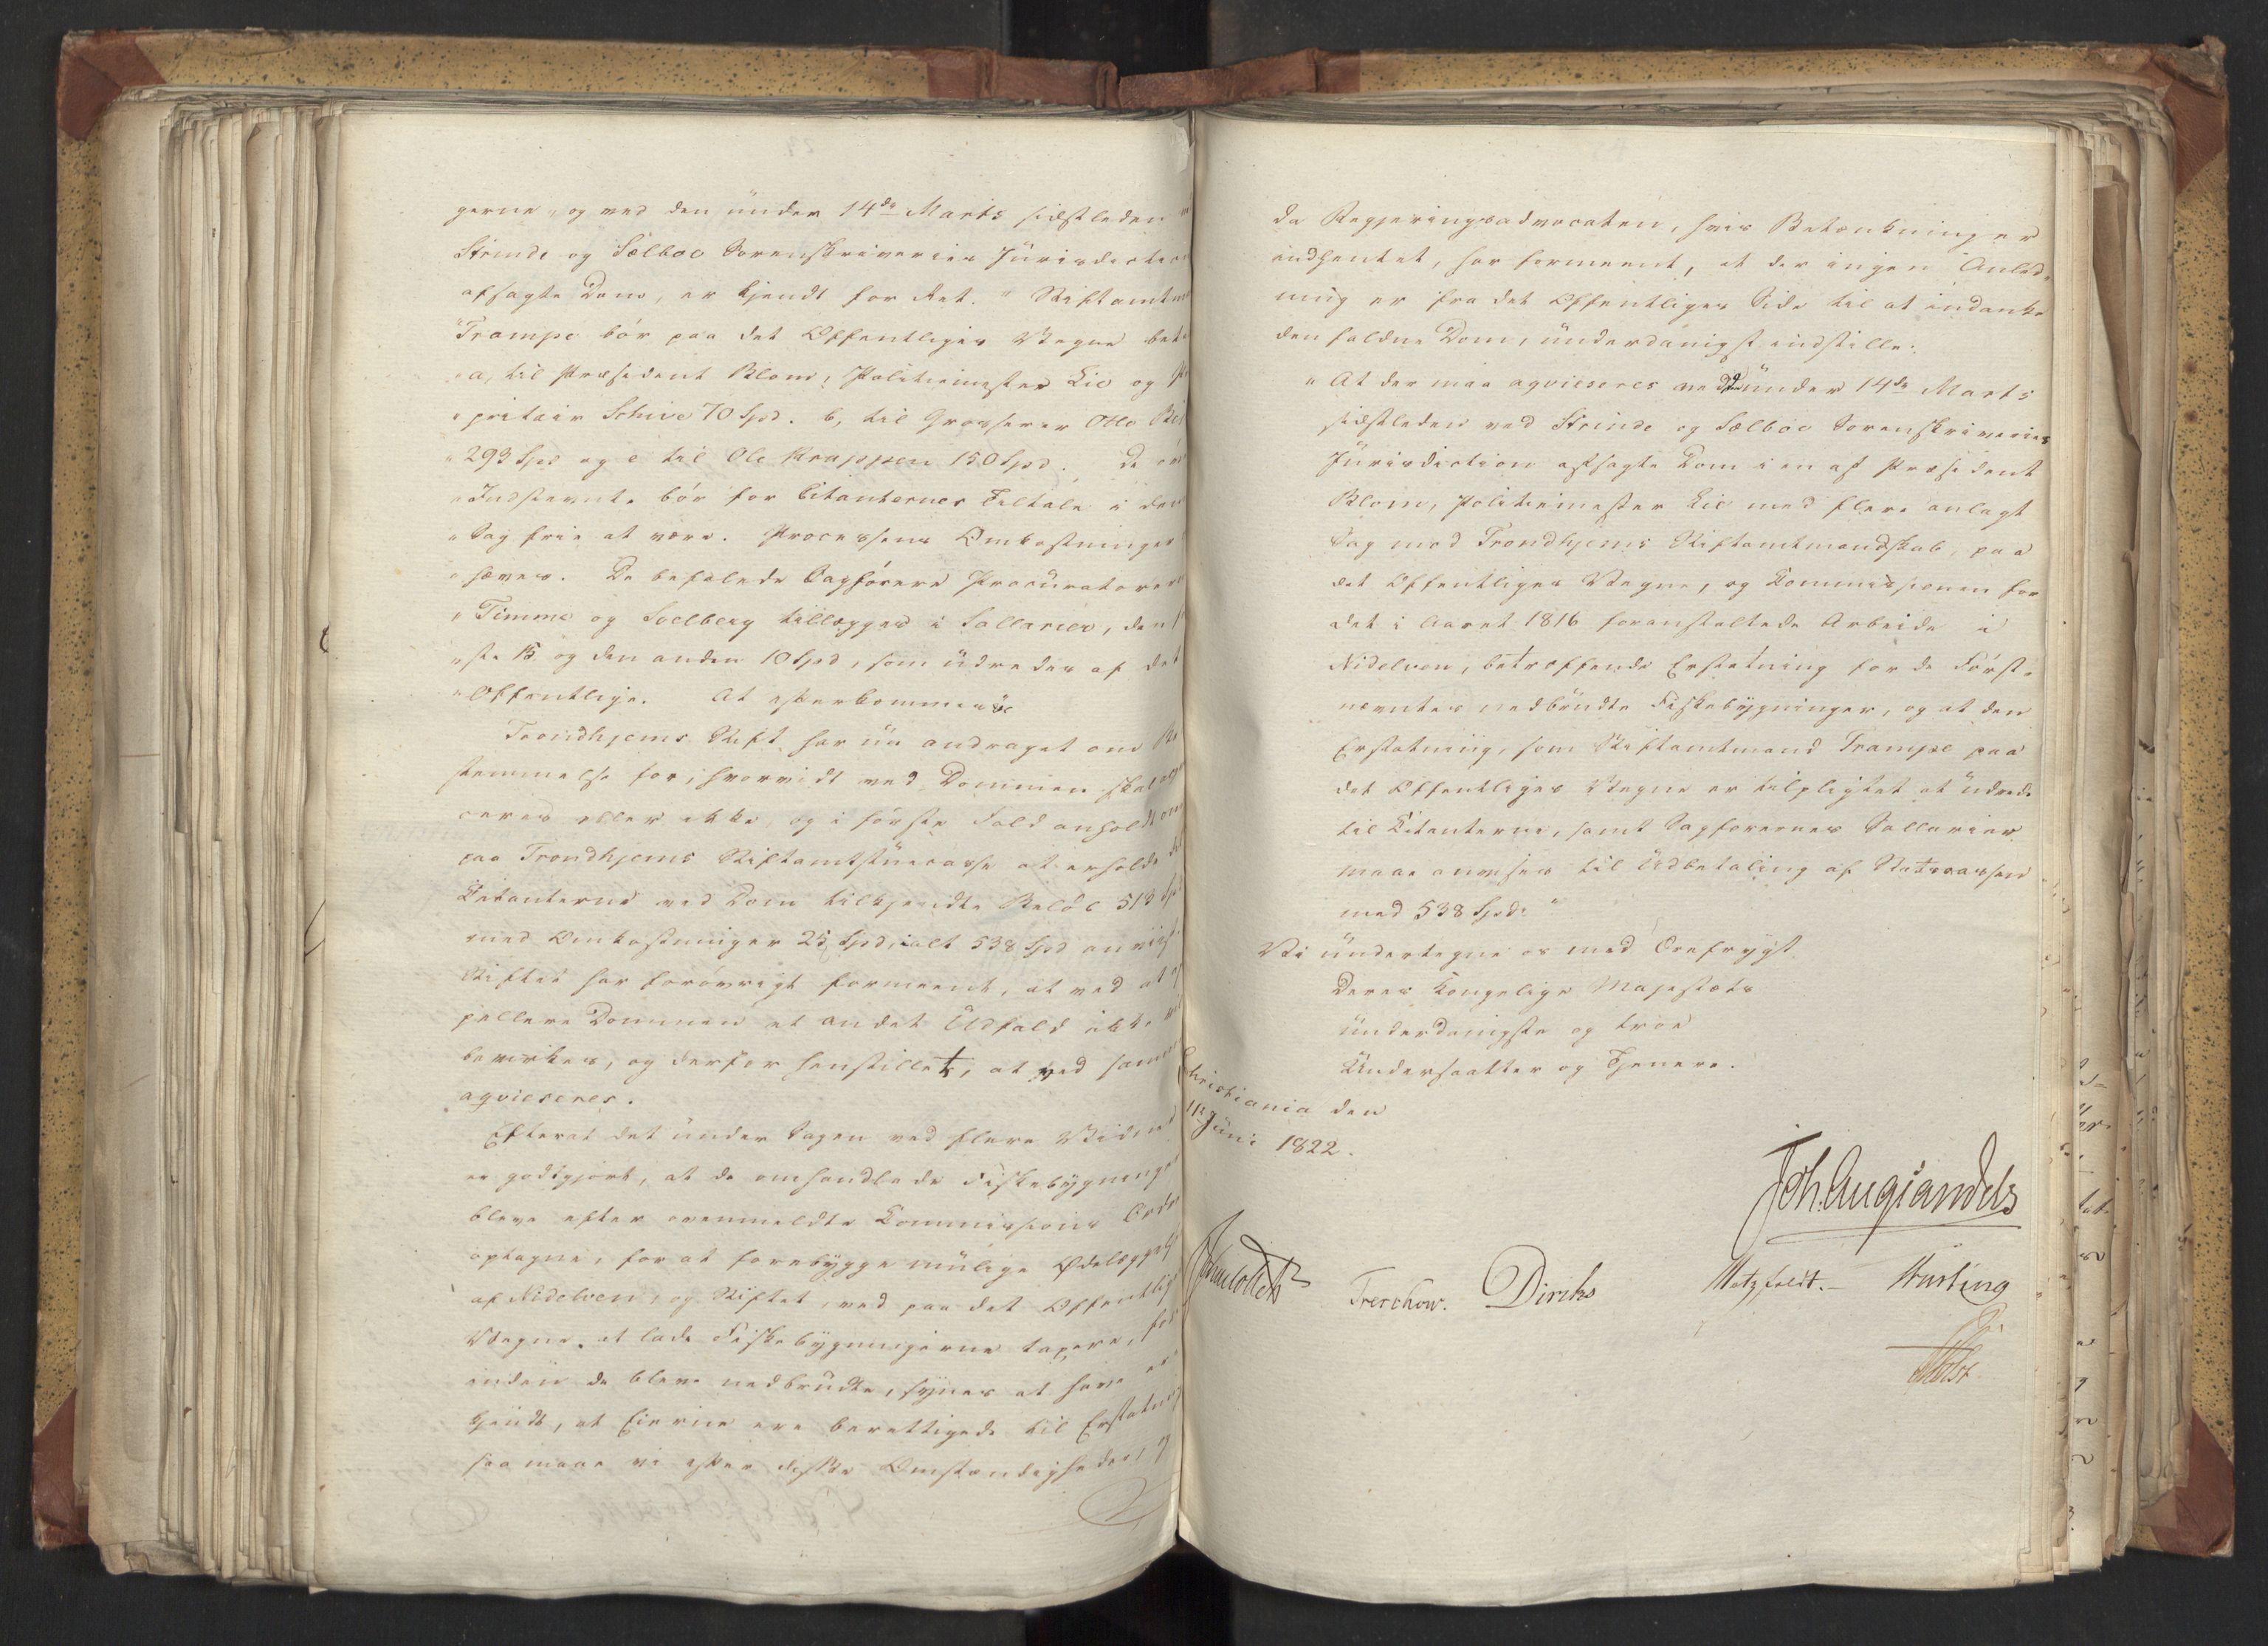 gerne, og ved den under 14de Marts sidstleden
Strinde og Sælboe Sorenskriveries Jurisdiction
afsagte Dom, er kjendt for Ret. "Stiftamtm
"Trampe bör paa det Offentliges Vegne beta
"a, til Præsident Blom, Politiemester Lie og Pro
"pritair Schive 70 Spd. b, til Grosserer Otto
"293 Spd og c til Ole Krappen 150 Spd. De öv
"Indstevnte bör for Citanternes Tiltale i den
"Sag frie at være. Processens Omkostninger
"hæves. De befalede Sagförere Procuratorer
"Timme og Soelberg tillægges i Sallarier, den
"ste 15 og den anden 10 Spd, som udredes af det
"Offentlige. At efterkommes &c
Trondhjems Stift har nu andraget om Be
stemmelse for, hvorvidt ved Dommen skal aqvie
ceres eller ikke, og i förste Fald anholdt om
paa Trondhjems Stiftamtstuecasse at erholde det
Citanterne ved Dom tilkjendte Belöb 513 Spd
med Omkostninger 25 Spd, ialt 538 Spd anviist.
Stiftet har forövrigt formeent, at ved at ap
pellere Dommen et andet Udfald ikke vil
bevirkes, og derfor henstillet, at ved samme
aqviesceres.
Efterat det under Sagen ved flere Vidner
er godtgjort, at de omhandlede Fiskebygninger
bleve efter ovenmeldte Commissions Ordre
optagne, for at forebygge mulige Ødelæggelse
af Nidelven, og Stiftet, ved paa det Offentlige
Vegne at lade Fiskebygningerne taxere, för
inden de bleve nedbrudte, synes at have er
kjendt, at Eierne ere berettigede til Erstatning
saa maae vi efter disse Omstændigheder, og
da Regjeringsadvocaten, hvis Betænkning er
indhentet, har formeent, at der ingen Anled-
ning er fra det Offentliges Side til at indanke
den faldne Dom, underdanigst indstille:
"At der maa aqviesceres ved den under 14de Marts
sidstleden ved Strinde og Sælboe Sorenskriveries
Jurisdiction afsagte Dom i en af Præsident
Blom, Politiemester Lie med flere anlagt
Sag mod Trondhjems Stiftamtmandskab, paa
det Offentliges Vegne, og Commissionen for
det i Aaret 1816 foranstaltede Arbeide i
Nidelven, betræffende Erstatning for de Först-
nævntes nedbrudte Fiskebygninger, og at den
Erstatning, som Stiftamtmand Trampe paa
det Offentliges Vegne er tilpligtet at udrede
til Citanterne, samt Sagförernes Sallarier
maae anvises til Udbetaling af Statscassen
med 538 Spd."
Vi undertegne os med Ærefrygt.
Deres Kongelige Majestæts
underdanigste og troe
Undersaatter og Tjenere.
Christiania den
Juni 1822.
Joh. Aug Sandels
Jonas Collett Treschow. Diriks Motzfeldt.- Krefting
Holst.